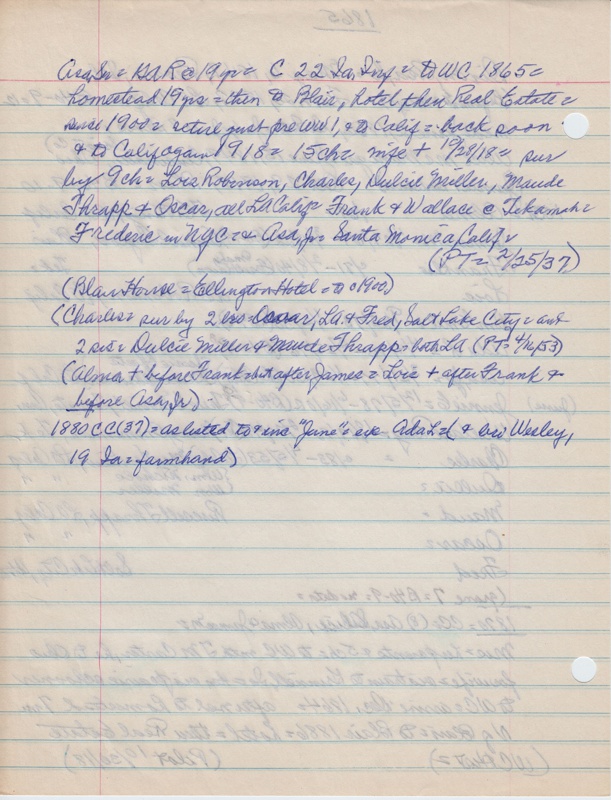 Asa, Sr = GAR @ 19 yr = C 22 Ia, Inf = to WC 1865 =
homestead 19 yrs = then to Blair, hotel then Real Estate =
since 1900 = active just pre WW 1, & to Calif = back soon
& to Calif again 1918 = 15 ch = wife + 10/29/18 = sur
by 9 ch = Lois Robinson, Charles, Dulcie Miller, Maude
Thrapp & Oscar, all LA Calif = Frank & Wallace @ Tekamah =
Frederic in NYC = & Asa, Jr = Santa Monica Calif
(PT = 2/25/37)
(Blair House = Ellington Hotel = to 1900)
(Charles = sur by 2 bro = Oscar, LA & Fred, Salt Lake City = and
2 sis = Dulcie Miller & Maude Thrapp = both LA (PT = 4/16/53)
(Alma + before Frank = but after James = Lois + after Frank &
before Asa, Jr)
1880 CC (37) = as listed to & inc "Jane" = exc Ada L = (& bro Wesley,
19 Ia = farmhand)